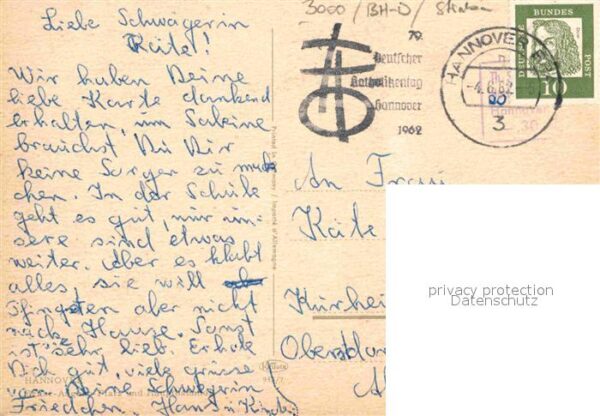 Liebe Schwägerin
Käte!
Wir haben Deine
liebe Karte dankend
erhalten, um Sabine
brauchst Du Dir
keine Sorgen zu ma
chen. In der Schule
geht es gut, nur un-
sere sind etwas
weiter. Aber es klabt
alles, sie will
Pfingsten aber nicht
nach Hause. Sonst
ist sie sehr lieb. Erhole
Dich gut, viele grüsse
von Deine Schwägerin
Friedchen. Hans u. Kinder
HANNOVER
3000 / BH-D /
79.
Deutscher
Katholikentag
Hannover
1962
HANNOVER
-4.6.62
20
3
DEUTSCHE BUNDESPOST
10
An Frau
Käte
Kurhei
Oberstdor
Al
Printed in Germany / Imprimé d'Allemagne
Krüger
privacy protection
Datenschutz